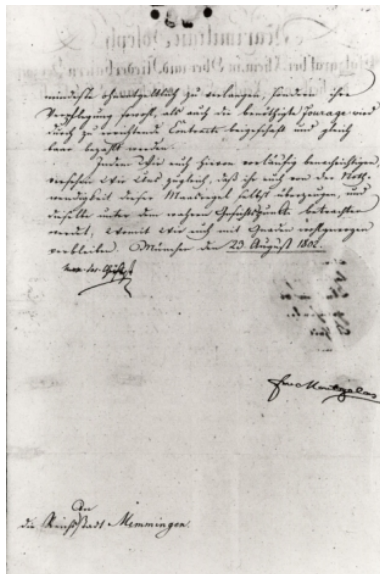 mindeste ohnentgeltlich zu verlangen, sondern ihre
Verpflegung sowohl, als auch die benöthigte Fourage wird
durch zu errichtende Contracte beigeschaft und gleich
baar bezahlt werden.
Indem Wir euch hievon vorläufig benachrichtigen,
versehen Wir Uns zugleich, daß ihr euch von der Noth-
wendigkeit dieser Maasregel selbst überzeugen, und
dieselbe unter dem wahren Gesichtspunkte betrachten
werdet, womit Wir euch mit Gnaden wohlgewogen
verbleiben. München den 23. August 1802.
Max. Jos. Churfürst
Montgelas
An
die Reichsstadt Memmingen.